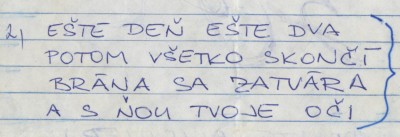 2) EŠTE DEŇ EŠTE DVA
POTOM VŠETKO SKONČÍ
BRÁNA SA ZATVÁRA
A S ŇOU TVOJE OČI